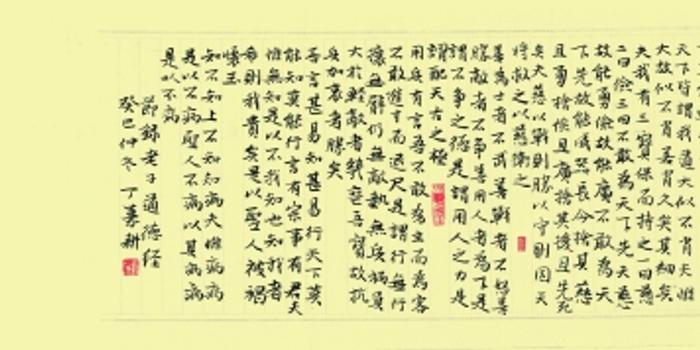 天下皆謂我道大似不肖夫唯
大故似不肖若肖久矣其細矣
夫我有三寶保而持之一曰慈
二曰儉三曰不敢為天下先夫慈
故能勇儉故能廣不敢為天
下先故能成器長今捨其慈
且勇捨儉且廣捨其後且先死
矣夫慈以戰則勝以守則固天
將救之以慈衛之
善為士者不武善戰者不怒善
勝敵者不爭善用人者為下是
謂不爭之德是謂用人之力是
謂配天古之極
用兵有言吾不敢為主而為客
不敢進寸而退尺是謂行無行
攘無臂仍無敵執無兵禍莫
大於輕敵者幾喪吾寶故抗
兵加哀者勝矣
吾言甚易知甚易行天下莫
能知莫能行言有宗事有君夫
惟無知是以不我知也知我者
希則我貴矣是以聖人被褐
懷玉
知不知上不知知病夫惟病病
是以不病聖人不病以其病病
是以不病
節錄老子道德經
癸巳仲冬 丁嘉耕